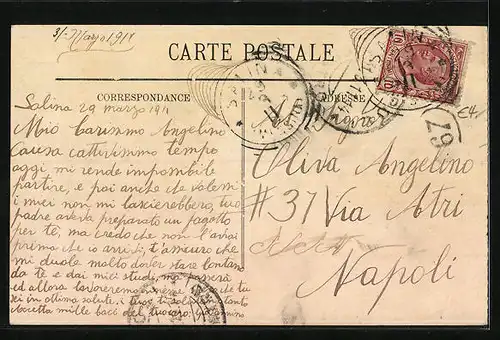 31-Marzo 1911
CARTE POSTALE
CORRESPONDANCE
ADRESSE
Salina 29 marzo 1911
Mio Carissimo Angelino
Causa cattivissimo tempo
oggi mi rende impossibile
partire, e poi anche che volessi
i miei non mi lascierebbero, tuo
padre aveva preparato un pagotto
per te, ma credo che non l'avrai
prima che io arrivi, t'assicuro che
mi duole molto dover stare lontano
da te e dai miei studi, ma passerà
ed allora lavoreremo insieme
in ottima salute, i tuoi ti salutano tanto
Accetta mille baci dal tuo caro
Signor
Oliva Angelino
#37 Via Atri
Napoli
79